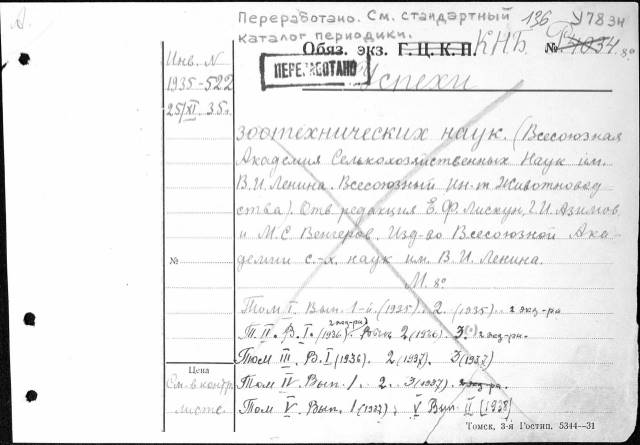 Переработано. См. стандартный 136 У78зн
каталог периодики.
Обяз. экз. Г.Ц.К.П. КНБ. № 4034. 8º
ПЕРЕРАБОТАНО
Инв. N
1935-522
25/XI 35г.
Успехи
зоотехнических наук. (Всесоюзная
Академия Сельскохозяйственных Наук им.
В.И. Ленина. Всесоюзный Ин-т Животновод
ства). Отв. редакция Е.Ф. Лискун, Г.И. Азимов
и М.С. Венгеров. Изд-во Всесоюзной Ака-
№ демии с.-х. наук им. В.И. Ленина.
М. 8º
Том I. Вып. 1-й. (1935). 2. (1935). 2 экз-ра
Т. II. В. I. (1936) 2 экз-ра. Вып. 2 (1936). 3. 2 экз-ра.
Том III. В. I (1936). 2 (1937). 3 (1937)
Цена
См. в контр.
листе.
Том IV. Вып. 1. 2. 3 (1937). 2 экз-ра.
Том V. Вып. 1 (1937); V Вып. II [1938]
Томск, 3-я Гостип. 5344—31